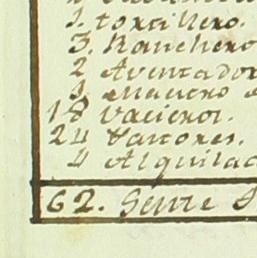 1. tortillero.
3. Ranchero
2 Aventador
1 Maestro
18 Vacieros.
24 Pastores.
4 Alquilac
62. Gente